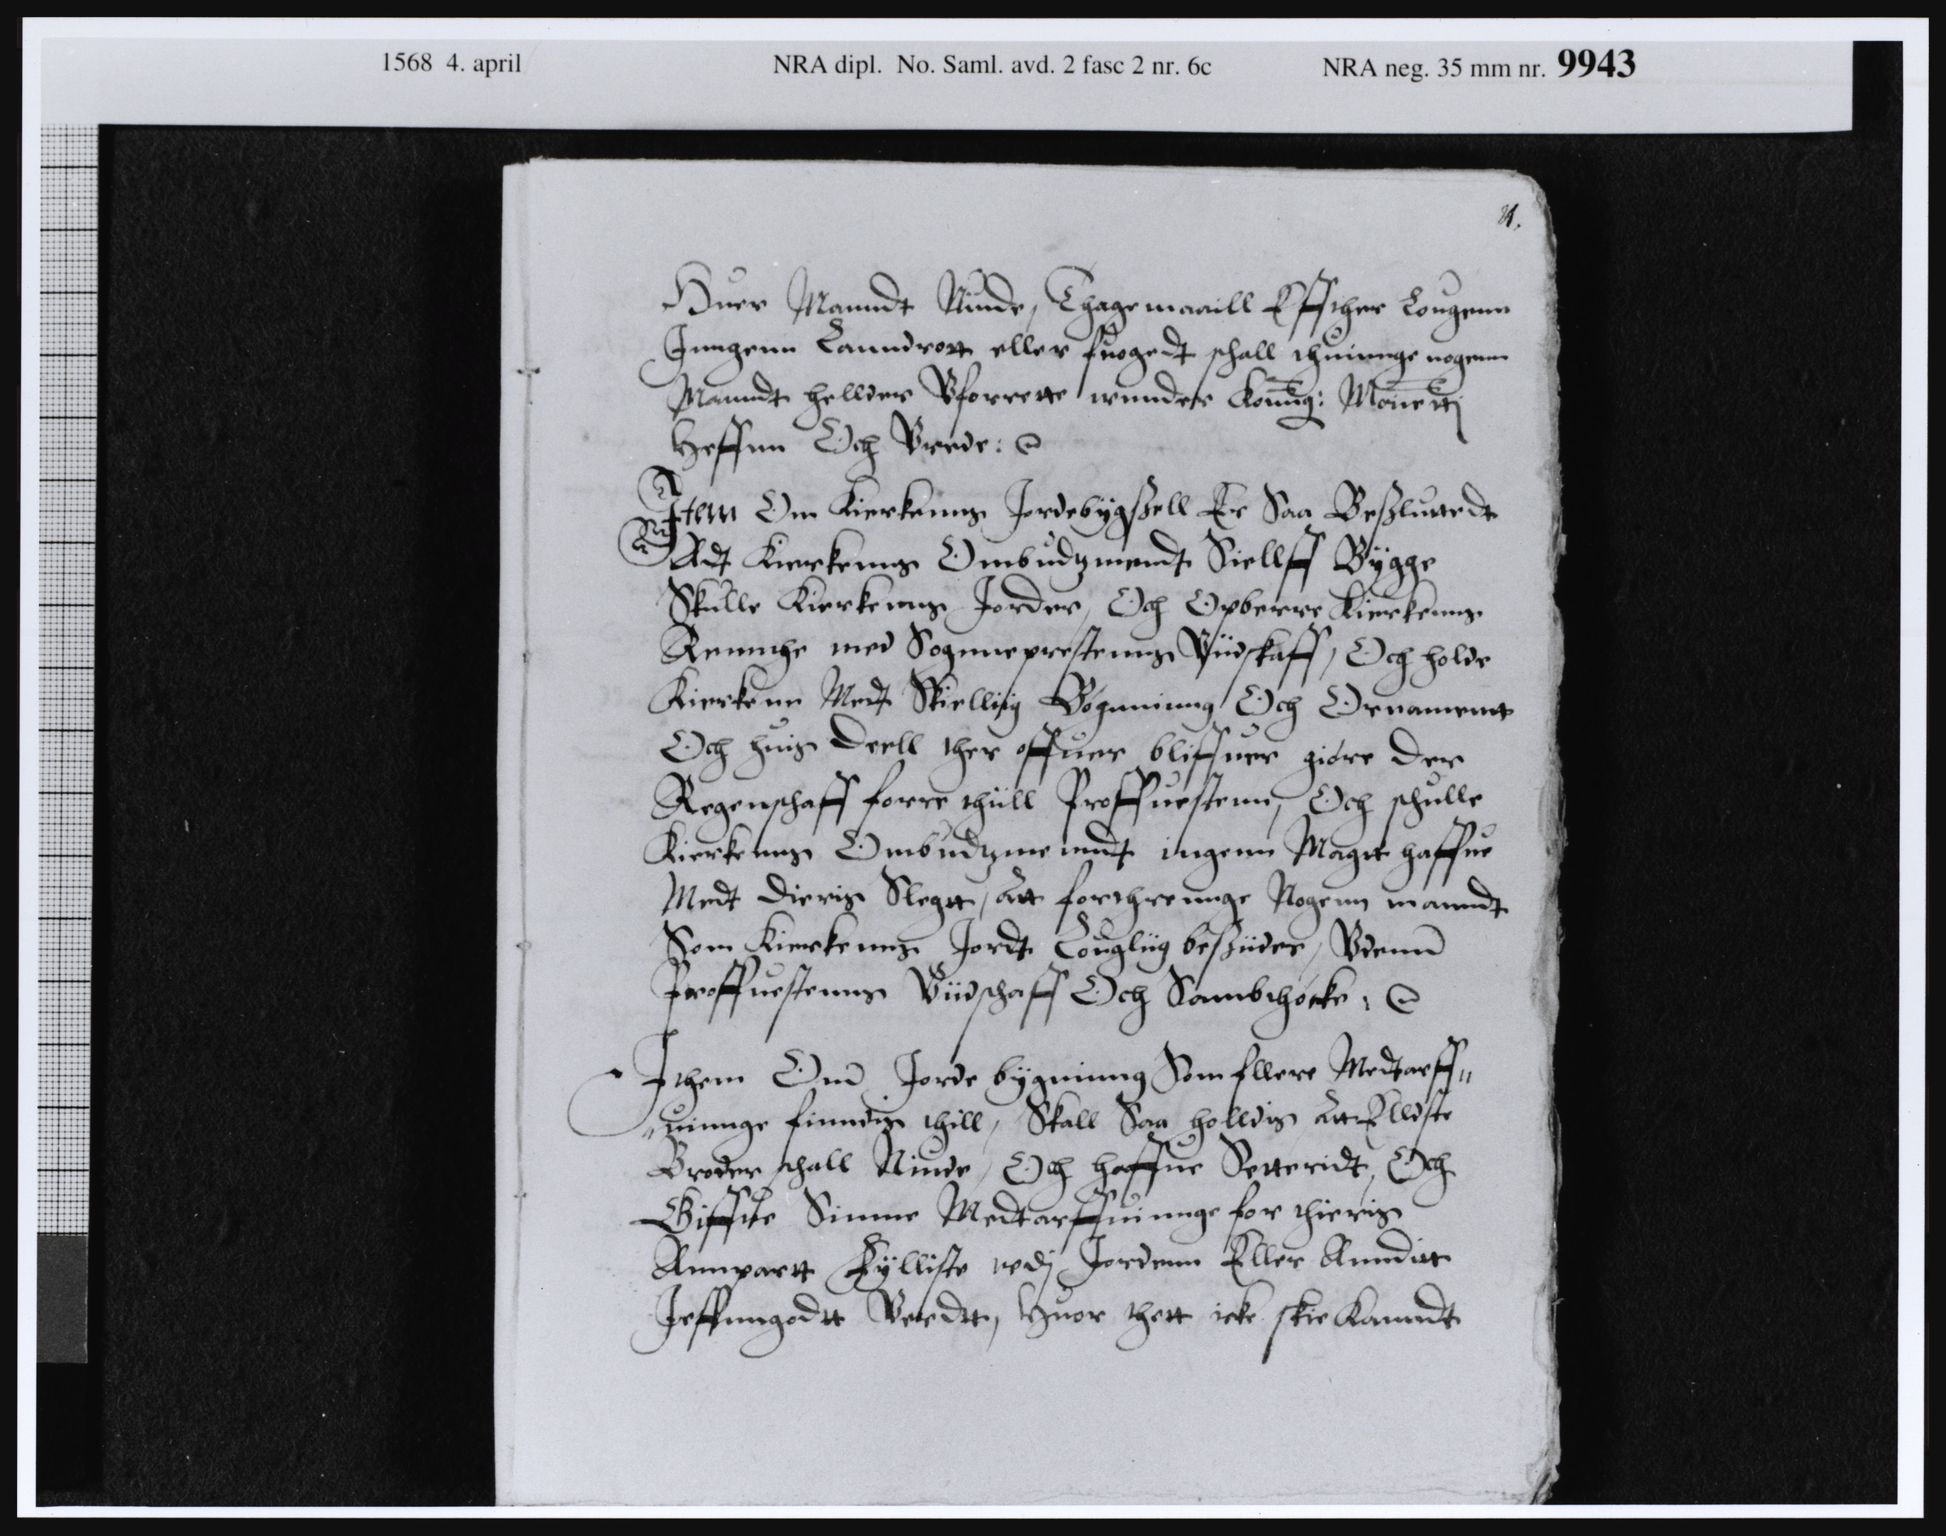 1568 4. april NRA dipl. No. Saml. avd. 2 fasc 2 nr. 6c NRA neg. 35 mm nr. 9943
Huer Manndt Niude, Thagemaaill Effther Lougenn
Inngenn Lanndrott eller fuogedt schall thuinnge nogenn
Manndt hellder Vforrette wunder Konng: Maiettj
Heffnn Och Vrede:
Item Om Kierkenns Jordebygszell Er Saa Beszluttedt
Adt Kierkenns Ombudtzmendt Siellff Bygge
Skulle Kierkenns Jorder, Och Opberre Kierkenns
Rennthe med Sogneprestenns Viidskaff, Och holde
Kierkenn Medt Skiellig Bögninng Och Ornamentt
Och huis deell ther offuer bliffuer giöre der
Regenschaff forre thiill Proffuestenn, Och schulle
Kierkenns Ombudtzmenndt ingenn Magtt haffue
Medt dieris Slegtt, att forthrennge Nogenn manndt
Som Kierkenns Jordt Louglig besziider, Vdenn
Proffuestenns Viidschaff Och Sambthöcke:
Ithem Om Jorde bygninng Som fllere Medtarff„
„uinnge finndis thill, Skall Saa holldis att Elldste
Broder schall Niude, Och haffue Setteridt, Och
Giffue Sinne Medtarffuinnge for thieris
Annpartt Fylliste vdj Jordenn Eller Annditt
Jeffnngodtt Verdtt, Huor thett icke skie Kanndt